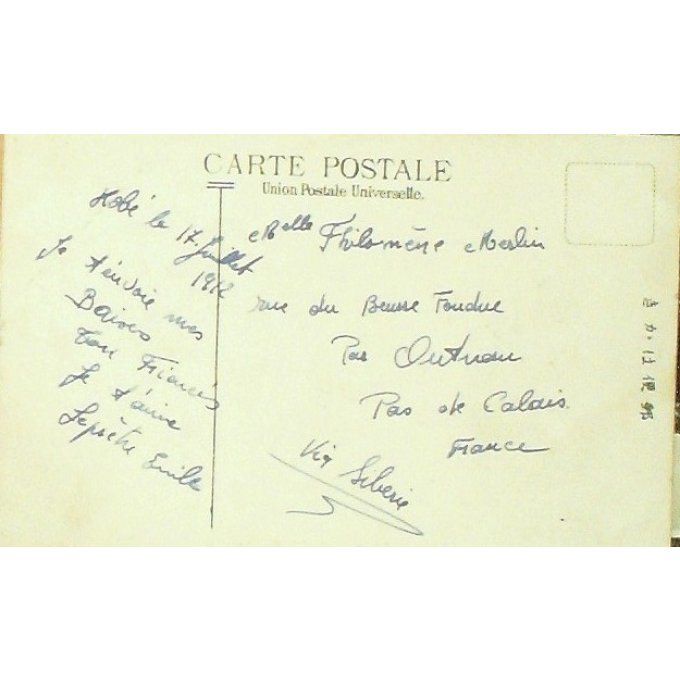 CARTE POSTALE
Union Postale Universelle.
Kobé le 17 Juillet
1912
Je t'envoie mes
Baisers
ton Fiancés
Je t'aime
Leprêtre Emile
Melle Philomène Merlin
rue du Beurre Fondue
Par Outreau
Pas de Calais
France
Via Siberie
きか・は便郵